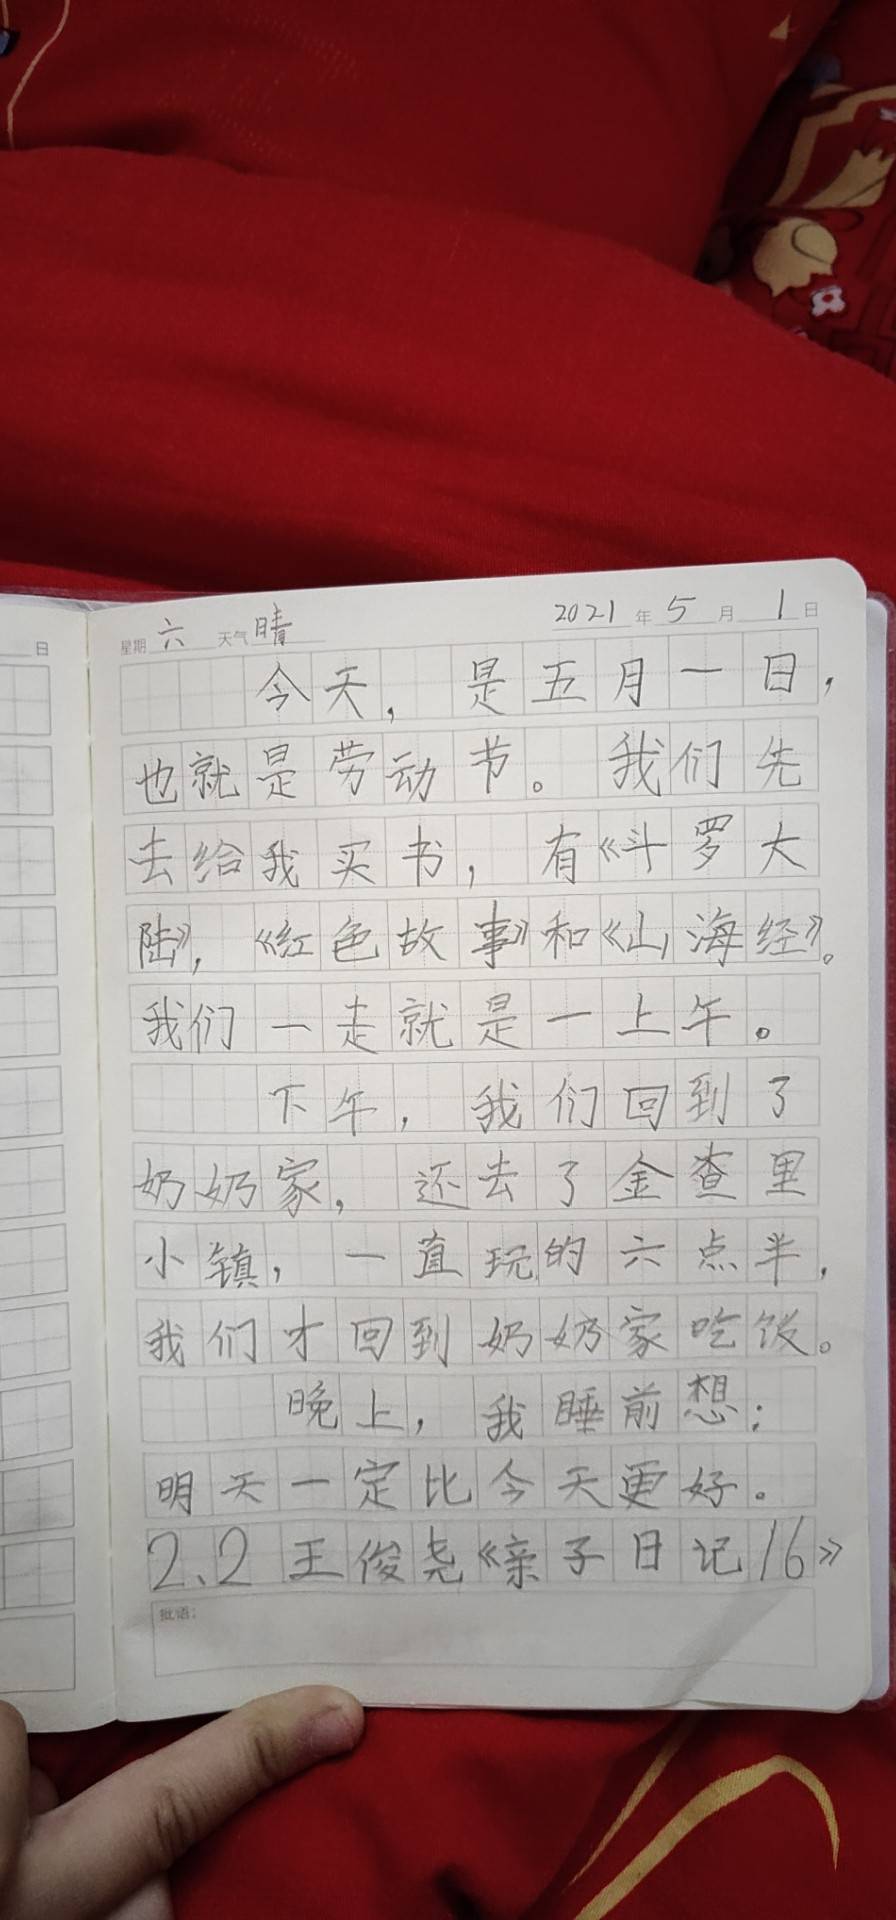 日
星期 六 天气 晴 2021 年 5 月 1 日
今天，是五月一日，
也就是劳动节。我们先
去给我买书，有《斗罗大
陆》，《红色故事》和《山海经》。
我们一走就是一上午。
下午，我们回到了
奶奶家，还去了金查里
小镇，一直玩的六点半，
我们才回到奶奶家吃饭。
晚上，我睡前想：
明天一定比今天更好。
2、2王俊尧《亲子日记16》
批语：